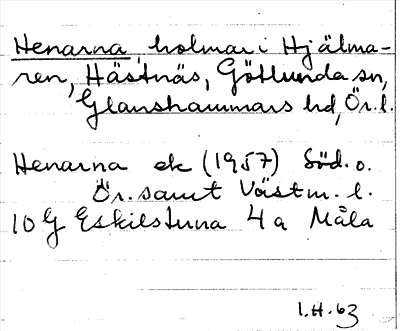 Henarna, holmar i Hjälma-
ren, Hästnäs, Götlunda sn,
Glanshammars hd, Ör. l.
Henarna ek (1957) Söd. o.
Ör. samt Västm. l.
10 G Eskilstuna 4 a Måla
1.H.63